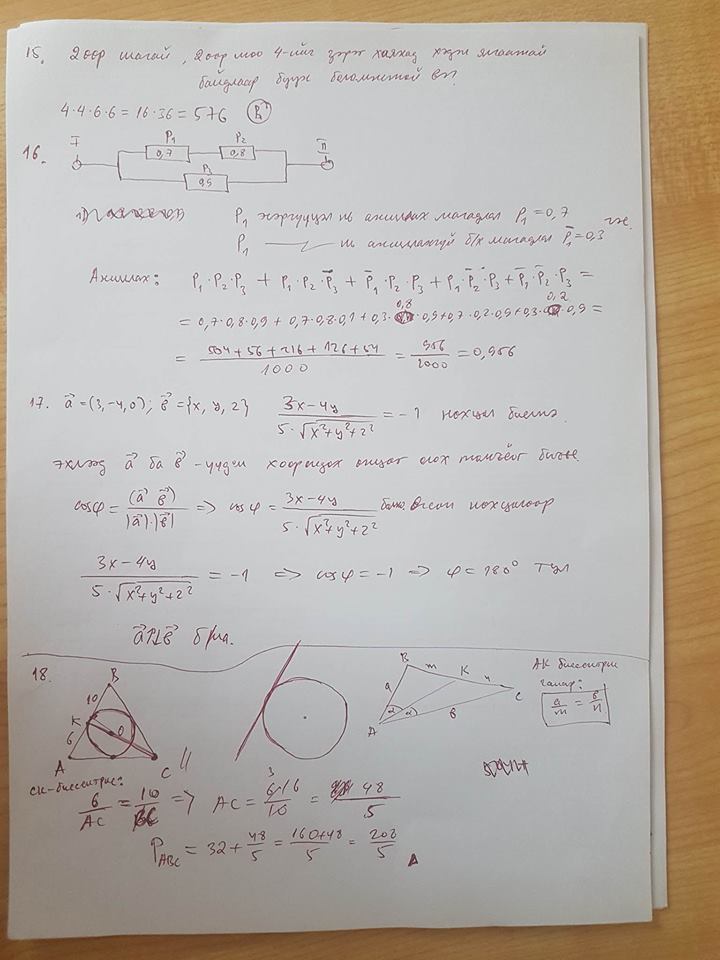 15. 2 оор шагай, 2 оор шоо 4-ийг зэрэг хаяхад хэдэн янзаатай
байдлаар бууж боломжтой вэ?
4·4·6·6 = 16·36 = 576
16. I P₁ 0,7 P₂ 0,8 II
0,9
P₁ нь ажиллах магадлал P₁ = 0,7 гэе.
P₁ нь ажиллахгүй б/х магадлал P̄₁ = 0,3
Ажиллах: P₁·P₂·P₃ + P₁·P₂·P̄₃ + P̄₁·P₂·P₃ + P₁·P̄₂·P₃ + P̄₁·P̄₂·P₃ =
= 0,7·0,8·0,9 + 0,7·0,8·0,1 + 0,3·0,8·0,9 + 0,7·0,2·0,9 + 0,3·0,2·0,9 =
= (504 + 56 + 216 + 126 + 54)/1000 = 956/1000 = 0,956
17. a⃗ = (3, -4, 0); b⃗ = {x, y, z} (3x - 4y)/(5·√(x²+y²+z²)) = -1 нөхцөл биелнэ.
эхлээд a⃗ ба b⃗ -үүдийн хоорондох өнцөг олох томъёог бичье.
cosφ = (a⃗ b⃗)/(|a⃗|·|b⃗|) => cosφ = (3x - 4y)/(5·√(x²+y²+z²)) болно. Өгсөн нөхцөлөөр
(3x - 4y)/(5·√(x²+y²+z²)) = -1 => cosφ = -1 => φ = 180° тул
a⃗ ↑↓ b⃗ байна.
18. B 10 K 6 O A C
B m K n C a b A α α
AK биссектрис
чанар:
a/m = b/n
CK-биссектрис:
6/AC = 10/BC => AC = 6·16/10 = 48/5
P_ABC = 32 + 48/5 = (160+48)/5 = 208/5